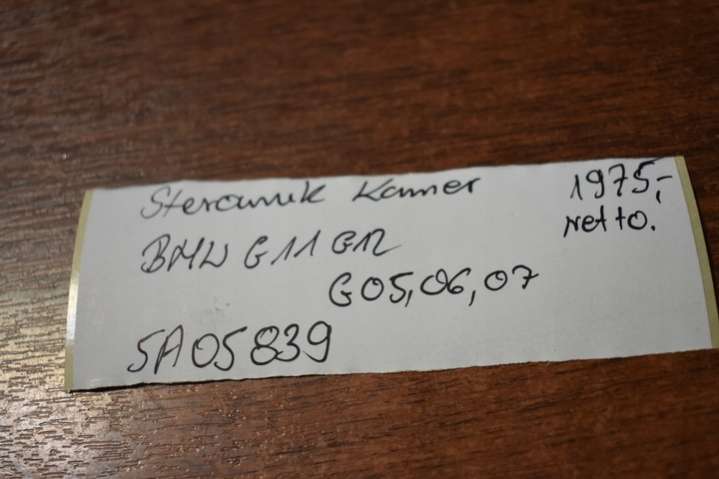 Sterownik Kamer 1975,-
netto.
BMW G11 G12
G05,06,07
5A05839